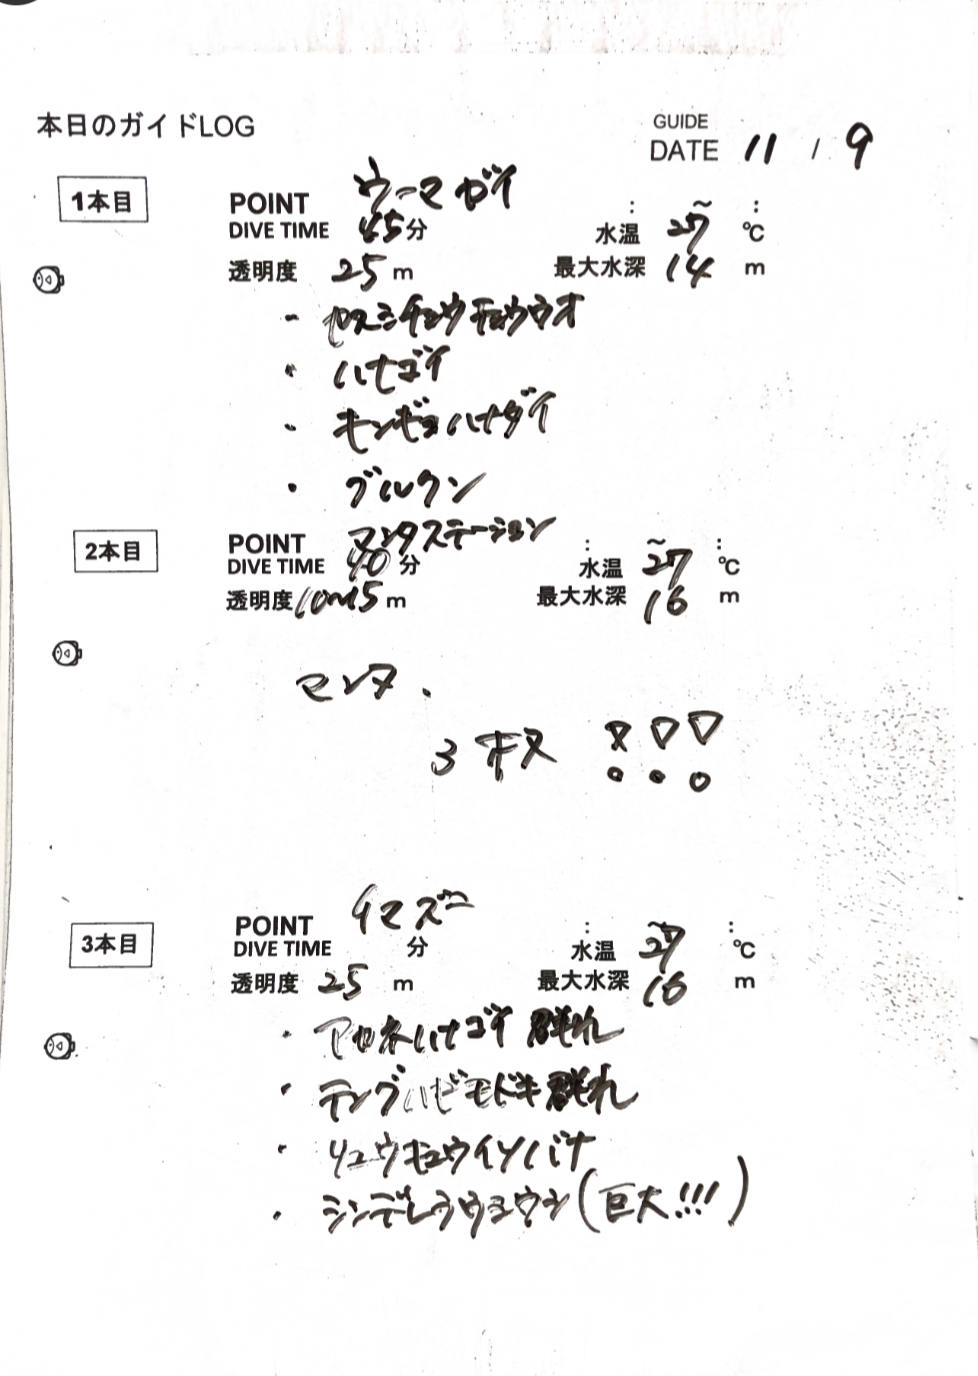 本日のガイドLOG
GUIDE
DATE 11 / 9
1本目
POINT ウーマガイ : ~ :
DIVE TIME 45分 水温 27 ℃
透明度 25 m 最大水深 14 m
- ヤスジチョウチョウウオ
・ハナゴイ
・キンギョハナダイ
・グルクン
2本目
POINT マンタステーション : ~ :
DIVE TIME 40分 水温 27 ℃
透明度 10~15 m 最大水深 16 m
マンタ.
3本目
POINT : ~ :
DIVE TIME 分 水温 27 ℃
透明度 25 m 最大水深 16 m
・アカネハナゴイ 群れ
・テングハギモドキ群れ
・リュウキュウイソバナ
・シンデレラウミウシ(巨大!!!)